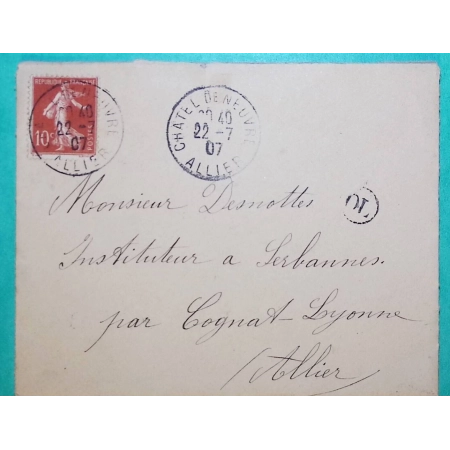 REPUBLIQUE FRANCAISE
10c
POSTES
20 40
22 - 7
07
ALLIER
CHATEL DE NEUVRE
20 40
22 - 7
07
ALLIER
OL
Monsieur Desnottes
Instituteur a Serbannes.
par Cognat-Lyonne
Allier